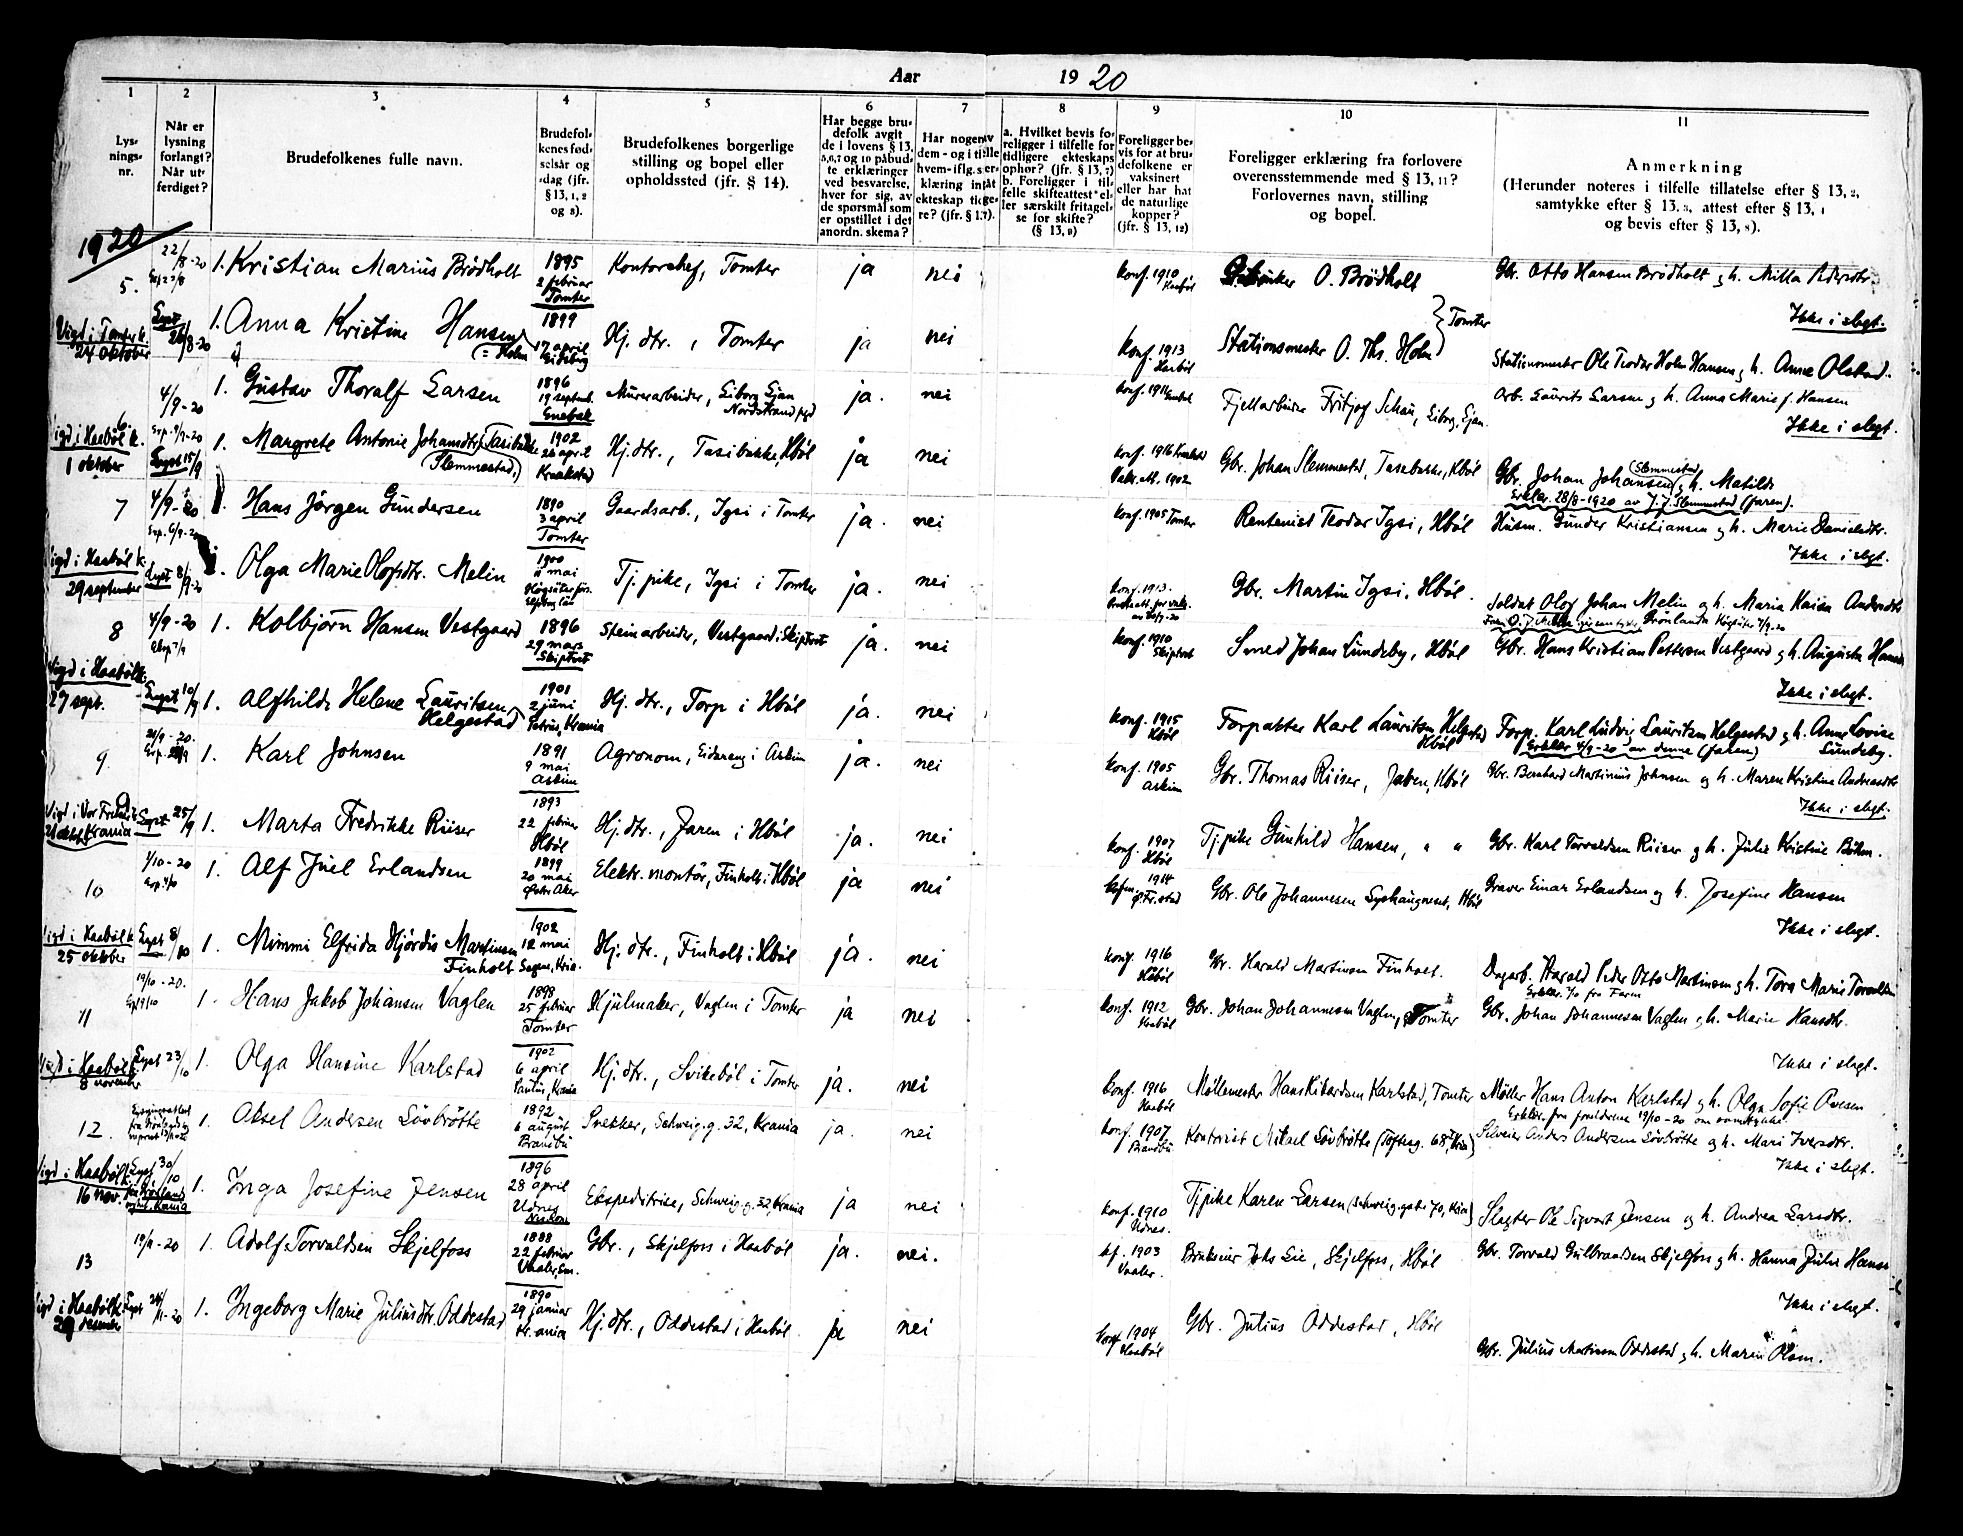 Aar 1920
1 2 3 4 5 6 7 8 9 10 11
Lys-
nings-
nr.
Når er
lysning
forlangt?
Når ut-
ferdiget?
Brudefolkenes fulle navn.
Brudefol-
kenes fød-
selsår og
-dag (jfr.
§ 13, 1, 2
og 8).
Brudefolkenes borgerlige
stilling og bopel eller
opholdssted (jfr. § 14).
Har begge bru-
defolk avgit
de i lovens § 13,
5,6,7 og 10 påbud-
te erklæringer
ved besvarelse,
hver for sig, av
de spørsmål som
er opstillet i det
anordn. skema?
Har nogen av
dem - og i tilfelle
hvem - iflg. s er-
klæring inngåt
ekteskap tidlige-
re? (jfr. § 1.7).
a. Hvilket bevis fo-
religger i tilfelle for
tidligere ekteskaps
ophør? (jfr. § 13, 7)
b. Foreligger i til-
felle skifteattest el-
ler særskilt fritagel-
se for skifte?
(§ 13, 8)
Foreligger be-
vis for at bru-
defolkene er
vaksinert
eller har hat
de naturlige
kopper?
(jfr. § 13, 12)
Foreligger erklæring fra forlovere
overensstemmende med § 13, 11?
Forlovernes navn, stilling
og bopel.
Anmerkning
(Herunder noteres i tilfelle tillatelse efter § 13, 2,
samtykke efter § 13. 3, attest efter § 13, 1
og bevis efter § 13, 8).
1920
5. 22/8-20 1. Kristian Marius Brödholt 1895 2 februar Tomter Kontorchef, Tomter ja nei konf. 1910 Haabøl O. Brödholt Gbr. Otto Hansen Brödholt og h. Milla
Ikke i slegt.
Vigd i Tomter k. 24 oktober 1. Anna Kristine Hansen (: Holm) 1899 17 april Eidsberg Hj. dtr., Tomter ja nei Konf. 1913 Haabøl Stationsmester O. Ths. Holm } Tomter Stationsmester Ole Teodor Holm Hansen og h. Anne Olstad.
6. 4/9-20 1. Gustav Thoralf Larsen 1896 19 septemb. Enebak Murerarbeider, Liborg Ljan Nordstrand ja. nei konf. 1911 Enebak Fjellarbeider Fritjof Schau, Liborg, Ljan. Arb. Laurits Larsen og h. Anna Marie f. Hansen
Ikke i slegt.
Vigd i Haabøl k. 1 oktober Exp. 9/9-20 15/9 1. Margrete Antonie Johansdtr. Tasibække (Slemmestad) 1902 26 april Kraakstad Hj. dtr., Tasibække, Hbøl ja nei konf. 1916 Kraakstad 1902 Gbr. Johan Slemmestad, Tasebække, Hbøl Gbr. Johan Johansen (Slemmestad) og h. Matilde
Erklær. 28/8-1920 av J. J. Slemmestad (faren).
7 4/9-20 Exp. 6/9-20 1. Hans Jörgen Gundersen 1890 3 april Tomter Gaardsarb., Igsi i Tomter ja. nei konf. 1905 Tomter Rentenist Teodor Igsi, Hbøl Husm. Gunder Kristiansen og h. Marie Danielsdtr.
Ikke i slegt.
Vigd i Haabøl k. 29 september 8/9-20 1. Olga Marie Olofsdtr. Melin 1900 11 mai Tj. pike, Igsi i Tomter ja. nei konf. 1913. Gbr. Martin Igsi, Hbøl. Soldat Olof Johan Melin og h. Maria Kaisa Andersdtr
8 4/9-20 7/9 1. Kolbjörn Hansen Vestgaard 1896 29 mars Skiptvet Steinarbeider, Vestgaard i Skiptvet ja. nei konf. 1910 Skiptvet Smed Johan Lundeby, Hbøl Gbr. Hans Kristian Pettersen Vestgaard og h. Augusta
Ikke i slegt.
Vigd i Haabøl k. 27 sept. 10/9 1. Alfhilde Helene Lauritsen Helgestad 1901 2 juni Petrus, Krania Hj. dtr., Torp i Hbøl ja. nei konf. 1915 Hbøl Forpakter Karl Lauritsen Helgestad Hbøl Forp. Karl Ludvig Lauritsen Helgestad og h. Anne Lovise Lundeby.
Erklær. 4/9-20 av denne (faren)
9. 21/9-20. 1. Karl Johnsen 1891 9 mai Askim Agronom, Eidareng i Askim ja. nei konf. 1905 Askim Gbr. Thomas Riiser, Jaren, Hbøl Gbr. Bernhard Martinius Johnsen og h. Maren Kristine Andreasdtr
Ikke i slegt.
Vigd i Vor Frelsers k. Krania 25/9 1. Marta Fredrikke Riiser 1893 22 februar Hbøl Hj. dtr., Jaren i Hbøl ja. nei konf. 1907 Hbøl Tj. pike Gunhild Hansen, " " Gbr. Karl Torvaldsen Riiser og h. Julie Kristine Böhm.
10 1/10-20 1. Alf Juel Erlandsen 1899 20 mai Østr. Aker Elektr. montör, Finholt i Hbøl ja nei 1914 Fr.stad Gbr. Ole Johannesen Hbøl Graver Einar Erlandsen og h. Josefine Hansen
Ikke i slegt.
Vigd i Haabøl k. 25 oktober 8/10 1. Mimmi Elfrida Hjördis Martinsen Finholt 1902 12 mai Sagene, Kria. Hj. dtr., Finholt i Hbøl ja. nei konf. 1916 Haabøl Gbr. Harald Martinsen Finholt. Dagarb. Harald Peder Otto Martinsen og h. Tora Marie
11 19/10-20. 1. Hans Jakob Johansen Vaglen 1898 25 februar Tomter Hjulmaker, Vaglen i Tomter ja nei konf. 1912 Haabøl Gbr. Johan Johannesen Vaglen, Tomter Gbr. Johan Johannesen Vaglen og h. Marie Hansdtr.
Ikke i slegt.
Vigd i Haabøl k. 8 november 23/10 1. Olga Hansine Karlstad 1902 6 april Paulus, Krania Hj. dtr., Svikebøl i Tomter ja. nei konf. 1916 Haabøl Möllemester Hans Rikardsen Karlstad, Tomter Möller Hans Anton Karlstad og h. Olga Sofie Ovesen
Erklær. fra foreldrene 19/10-20 om samtykke.
12. 1. Aksel Andersen Lövbrötte 1892 6 august Brandbu Snekker, Schweig. g. 32, Krania ja. nei konf. 1907 Brandbu Kontorist Mikael Lövbrötte (Toftesg. 68, Kria) Anders Andersen Lövbrötte og h. Mari Iversdtr.
Ikke i slegt.
Vigd i Haabøl k. 16 nov. 30/10 1. Inga Josefine Jensen 1896 28 april Udnes Ekspeditrise, Schweig. g. 32, Krania ja nei konf. 1910 Udnes. Tj. pike Karen Larsen (Schweig. gate 70, Kria) Slagter Ole Sigvart Jensen og h. Andrea Larsdtr.
13 1. Adolf Torvaldsen Skjelfoss 1888 22 februar Vaaler, Sm. Gbr., Skjelfoss i Haabøl ja. nei. kf. 1903 Vaaler. Brukseier Johs Lie, Skjelfoss, Hbøl Gbr. Torvald Gulbrandsen Skjelfoss og h. Hanna Julie Hansen
Ikke i slegt.
Vigd i Haabøl k. 29 desember 24/11-20 1. Ingeborg Marie Juliusdtr. Oddestad 1890 29 januar Krania Hj. dtr., Oddestad i Haabøl. ja nei konf 1904 Haabøl Gbr. Julius Oddestad, Hbøl Gbr. Julius Martinsen Oddestad og h. Maren Olsen.